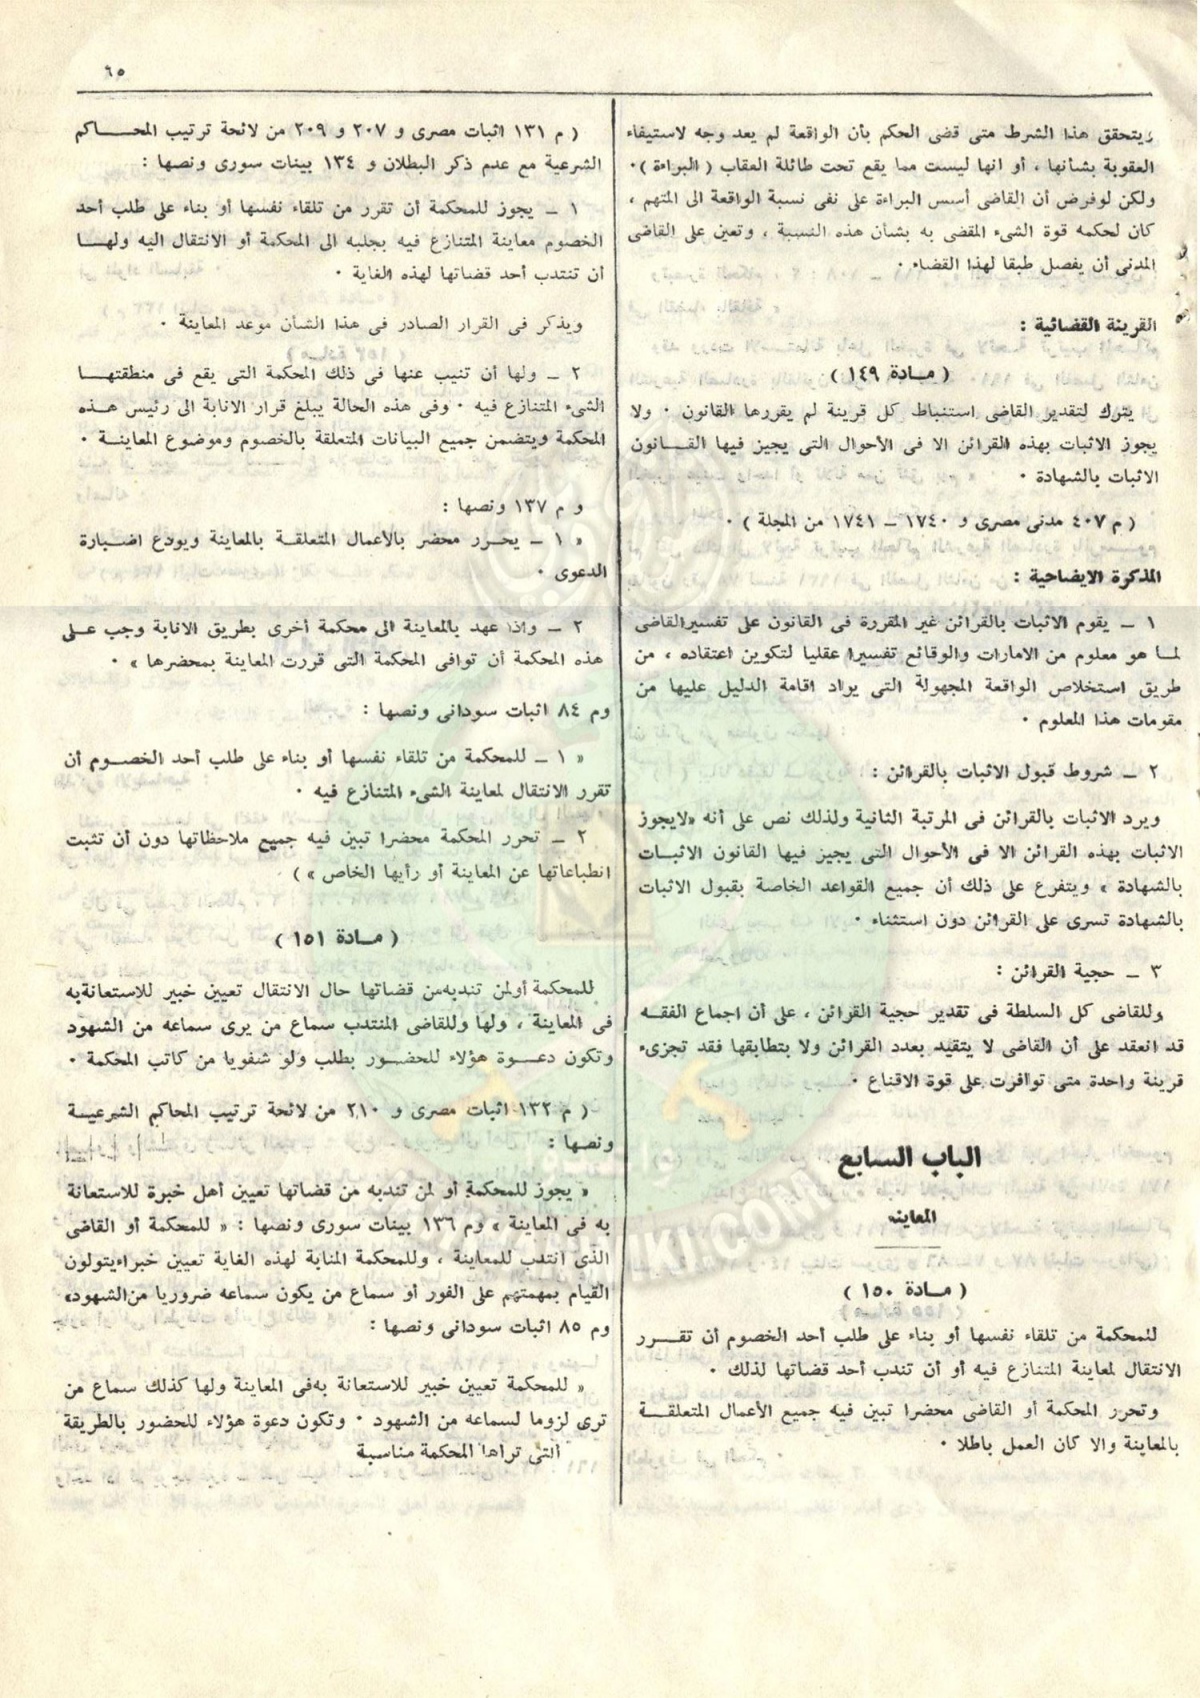 ٦٥
ويتحقق هذا الشرط متى قضى الحكم بأن الواقعة لم يعد وجه لاستيفاء
العقوبة بشأنها ، أو انها ليست مما يقع تحت طائلة العقاب ( البراءة ) ·
ولكن لو فرض أن القاضى أسس البراءة على نفى نسبة الواقعة الى المتهم ،
كان لحكمه قوة الشىء المقضى به بشأن هذه النسبة ، وتعين على القاضى
المدنى أن يفصل طبقا لهذا القضاء ·
القرينة القضائية :
( مــادة ١٤٩ )
يترك لتقدير القاضى استنباط كل قرينة لم يقررها القانون · ولا
يجوز الاثبات بهذه القرائن الا فى الأحوال التى يجيز فيها القــانون
الاثبات بالشهادة ·
( م ٤٠٧ مدنى مصرى و ١٧٤٠ – ١٧٤١ من المجلة ) ·
المذكرة الايضاحية :
١ – يقوم الاثبات بالقرائن غير المقررة فى القانون على تفسيرالقاضى
لمـا هو معلوم من الامارات والوقائع تفسيرا عقليا لتكوين اعتقاده ، من
طريق استخلاص الواقعة المجهولة التى يراد اقامة الدليل عليها من
مقومات هذا المعلوم ·
٢ – شروط قبول الاثبات بالقرائن :
ويرد الاثبات بالقرائن فى المرتبة الثانية ولذلك نص على أنه «لايجوز
الاثبات بهذه القرائن الا فى الأحوال التى يجيز فيها القانون الاثبــات
بالشهادة » ويتفرع على ذلك أن جميع القواعد الخاصة بقبول الاثبات
بالشهادة تسرى على القرائن دون استثناء ·
٣ – حجية القرائن :
وللقاضى كل السلطة فى تقدير حجية القرائن ، على أن اجماع الفقــه
قد انعقد على أن القاضى لا يتقيد بعدد القرائن ولا بتطابقها فقد تجزىء
قرينة واحدة متى توافرت على قوة الاقناع ·
الباب السابع
المعاينه
( مــادة ١٥٠ )
للمحكمة من تلقاء نفسها أو بناء على طلب أحد الخصوم أن تقــرر
الانتقال لمعاينة المتنازع فيه أو أن تندب أحد قضاتها لذلك ·
وتحرر المحكمة أو القاضى محضرا تبين فيه جميع الأعمال المتعلقــة
بالمعاينة والا كان العمل باطلا ·
( م ١٣١ اثبات مصرى و ٢٠٧ و ٢٠٩ من لائحة ترتيب المحــاكم
الشرعية مع عدم ذكر البطلان و ١٣٤ بينات سورى ونصها :
١ – يجوز للمحكمة أن تقرر من تلقاء نفسها أو بناء على طلب أحد
الخصوم معاينة المتنازع فيه بجلبه الى المحكمة أو الانتقال اليه ولهــا
أن تنتدب أحد قضاتها لهذه الغاية ·
ويذكر فى القرار الصادر فى هذا الشأن موعد المعاينة ·
٢ – ولها أن تنيب عنها فى ذلك المحكمة التى يقع فى منطقتهــا
الشىء المتنازع فيه · وفى هذه الحالة يبلغ قرار الانابة الى رئيس هــذه
المحكمة ويتضمن جميع البيانات المتعلقة بالخصوم وموضوع المعاينــة ·
و م ١٣٧ ونصها :
« ١ – يحــرر محضر بالأعمال المتعلقــة بالمعاينة ويودع اضبــارة
الدعوى ·
٢ – واذا عهد بالمعاينة الى محكمة أخرى بطريق الانابة وجب علــى
هذه المحكمة أن توافى المحكمة التى قررت المعاينة بمحضرها » ·
وم ٨٤ اثبات سودانى ونصها :
« ١ – للمحكمة من تلقاء نفسها أو بناء على طلب أحد الخصــوم أن
تقرر الانتقال لمعاينة الشىء المتنازع فيه ·
٢ – تحرر المحكمة محضرا تبين فيه جميع ملاحظاتها دون أن تثبت
انطباعاتها عن المعاينة أو رأيها الخاص » )
( مــادة ١٥١ )
للمحكمة أولمن تندبهمن قضاتها حال الانتقال تعيين خبير للاستعانةبه
فى المعاينة ، ولها وللقاضى المنتدب سماع من يرى سماعه من الشهود
وتكون دعــوة هؤلاء للحضــور بطلب ولو شفويا من كاتب المحكمة ·
( م ١٣٢ اثبات مصرى و ٢١٠ من لائحة ترتيب المحاكم الشرعيــة
ونصها :
« يجوز للمحكمة أو لمن تندبه من قضاتها تعيين أهل خبرة للاستعانة
به فى المعاينة » وم ١٣٦ بينات سورى ونصها : « للمحكمة أو القاضى
الذى انتدب للمعاينة ، وللمحكمة المنابة لهذه الغاية تعيين خبراءيتولون
القيام بمهمتهم على الفور أو سماع من يكون سماعه ضروريا من الشهود»
وم ٨٥ اثبات سودانى ونصها :
« للمحكمة تعيين خبير للاستعانة بهفى المعاينة ولها كذلك سماع من
ترى لزوما لسماعه من الشهود · وتكون دعوة هؤلاء للحضور بالطريقة
التى تراها المحكمة مناسبة